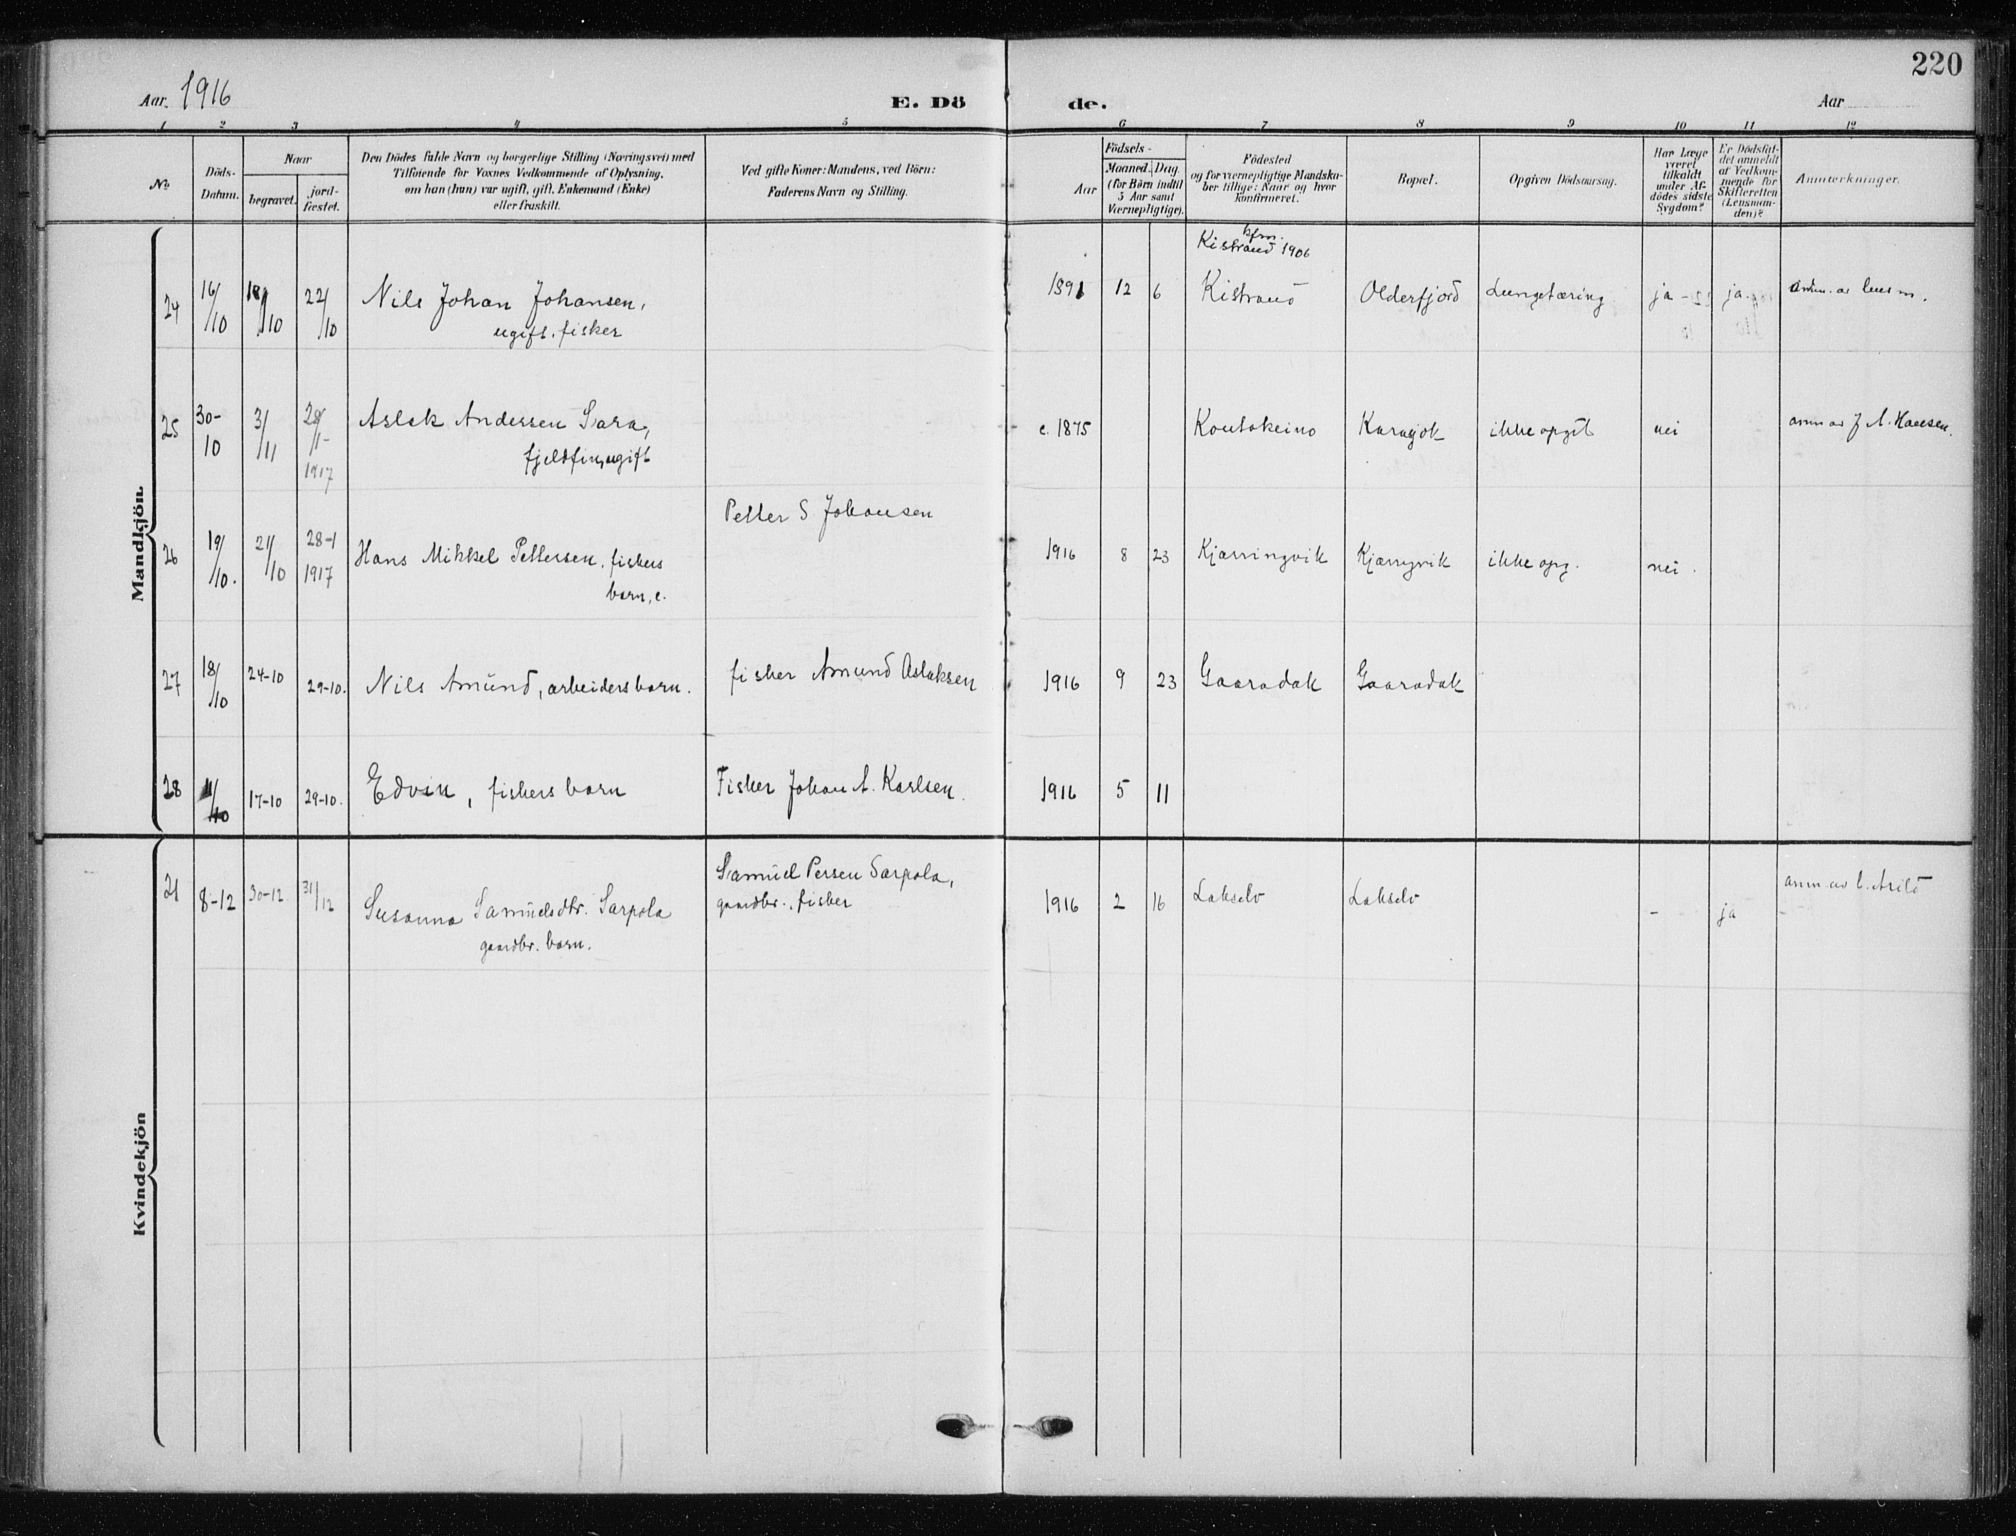 220
Aar. 1916
E. Dö de.
Aar
1 2 3 4 5 6 7 8 9 10 11 12
No.
Döds-Datum.
Naar
begravet.
jord-fæstet.
Den Dödes fulde Navn og borgerlige Stilling (Næringsvei) med
Tilføiende for Voxnes Vedkommende af Oplysning,
om han (hun) var ugift, gift, Enkemand (Enke)
eller fraskilt.
Ved gifte Koner: Mandens, ved Börn:
Faderens Navn og Stilling.
Födsels-
Aar
Maaned. Dag.
(for Börn indtil
5 Aar samt
Værnepligtige).
Födested
og for værnepligtige Mandska-
ber tillige: Naar og hvor
konfirmeret.
Bopæl.
Opgiven Dödsaarsag.
Har Læge
været
tilkaldt
under Af-
dödes sidste
Sygdom?
Er Dödsfal-
det anmeldt
af Vedkom-
mende for
Skifteretten
(Lensman-
den)?
Anmærkninger.
Mandkjön.
kfm.
Kistrand 1906
24 16/10 18/10 22/10 Nils Johan Johansen, 1891 12 6 Kistrand Olderfjord Lungetæring ja ja. anm. av lensm.
ugift. fisker
25 30-10 3/11 28/1-1917 Aslak Andersen Sara, c. 1875 Koutokeino Karasjok ikke opgit nei anm av J A. Hansen.
fjeldfin, ugift
Petter S Johansen
26 19/10. 21/10 28-1 1917 Hans Mikkel Pettersen, fiskers 1916 8 23 Kjærringvik Kjærrgvik ikke opg. nei.
barn, e.
27 18/10 24-10 29-10. Nils Amund, arbeiders barn. fisker Amund Aslaksen 1916 9 23 Gaaradak Gaaradak
28 11/10 17-10 29-10. Edvin, fiskers barn Fisker Johan A. Karlsen. 1916 5 11
Kvindekjön
21 8-12 30-12 31/12 Susanna Samuelsdtr. Sarpola Samuel Persen Sarpola, 1916 2 16 Lakselv Lakselv - ja anm. av C. Arild
gaardbr. barn. gaardbr., fisker